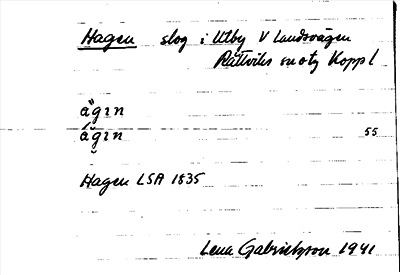 Hagen slog i Utby V Landsvägen
Rättviks sn o tg Koppl
a̋gın
ág̈ın
55
Hagen LSA 1835
Lena Gabrielsson 1941